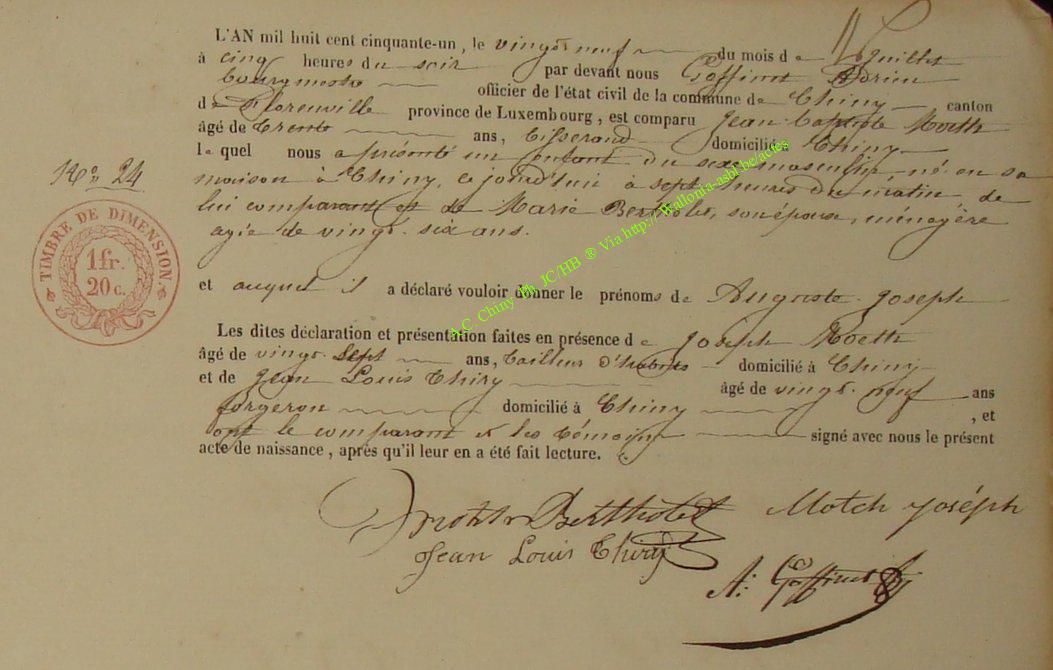 L'AN mil huit cent cinquante-un, le vingt neuf du mois de Juillet
à cinq heures du soir par devant nous Goffinet Adrien
bourgmestre officier de l'état civil de la commune de Chiny canton
de Florenville province de Luxembourg, est comparu Jean-Baptiste
âgé de trente ans, tisserand domicilié à Chiny
lequel nous a présenté un enfant du sexe masculin, né en sa
maison à Chiny, ce jourd'hui à sept heures du matin, de
lui comparant et de Marie Bertholet, son épouse, ménagère
agée de vingt-six ans.
No 24
TIMBRE DE DIMENSION.
1 fr.
20 c.
et auquel il a déclaré vouloir donner le prénoms de Auguste Joseph
Les dites déclaration et présentation faites en présence de Joseph
âgé de vingt-sept ans, tailleur d'habits domicilié à Chiny
et de Jean Louis Thiry âgé de vingt-neuf ans
forgeron domicilié à Chiny , et
ont le comparant et les témoins signé avec nous le présent
acte de naissance, après qu'il leur en a été fait lecture.
Bertholet Motch joséph
Jean Louis Thiry
A: Goffinet
A.C. Chiny Ph. JC/HB ® Via http://wallonia-asbl.be/actes